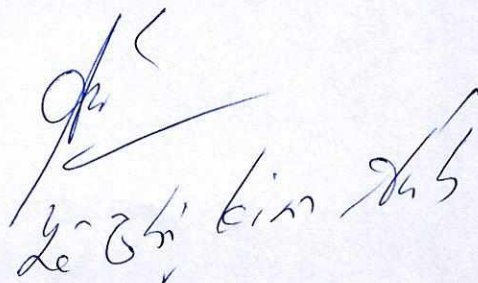 Lê Thị Kim Anh